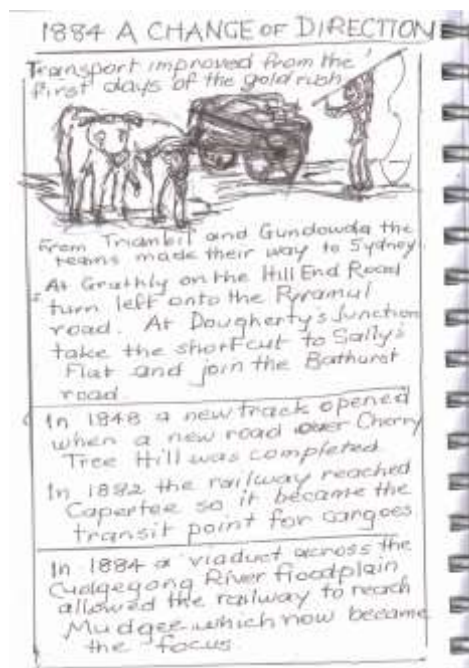 1884 A CHANGE OF DIRECTION
Transport improved from the
first days of the gold rush
From Triambil and Gundowda the
teams made their way to Sydney.
At Grathly on the Hill End Road
turn left onto the Pyramul
road. At Dougherty's Junction
take the shortcut to Sally's
Flat and join the Bathurst
road.
In 1848 a new track opened
when a new road over Cherry
Tree Hill was completed.
In 1882 the railway reached
Capertee so it became the
transit point for cargoes
In 1884 a viaduct across the
Cudgegong River floodplain
allowed the railway to reach
Mudgee which now became
the focus.